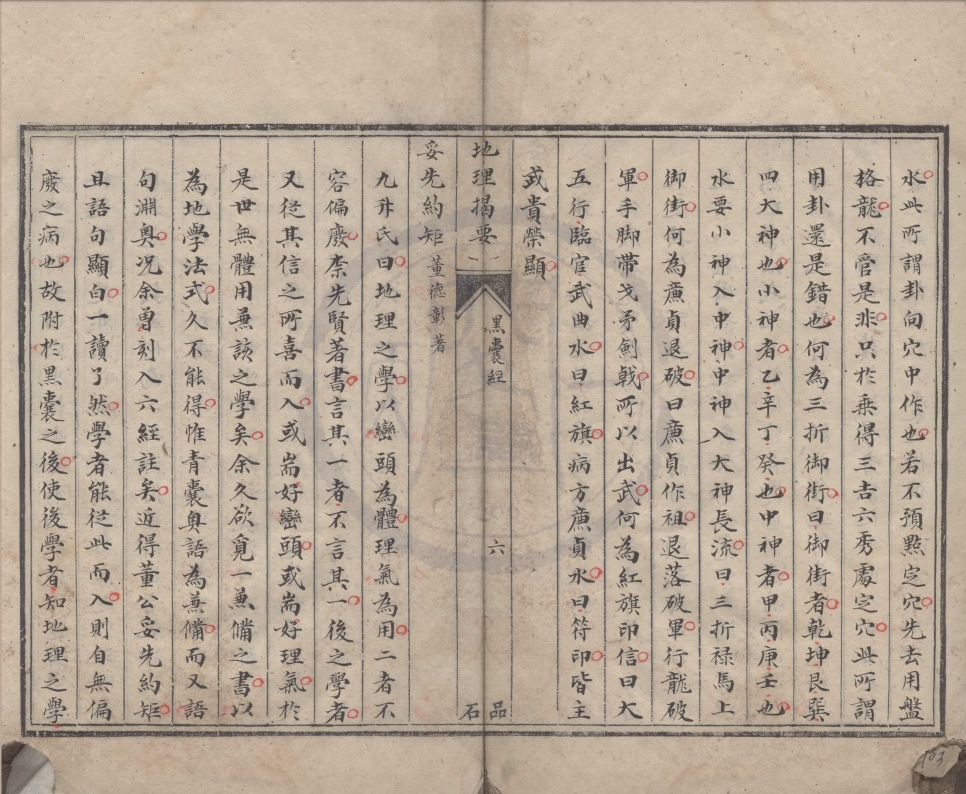 水此所謂卦向穴中作也若不預點定穴先去用盤
格龍不管是非只於乗得三吉六秀處定穴此所謂
用卦還是錯也何為三折御街曰御街者乾坤艮巽
四大神也小神者乙辛丁癸也中神者甲丙庚壬也
水要小神入中神中神入大神長流曰三折禄馬上
御街何為亷貞退破曰亷貞作祖退落破軍行龍破
軍手脚帶戈矛劍戟所以出武何為紅旗印信曰大
五行臨官武曲水曰紅旗病方亷貞水曰符印皆主
武貴榮顯
地理揭要
黑囊經
六
品石
妥先約矩 董德彰著
九升氏曰地理之學以巒頭為體理氣為用二者不
容偏廢柰先賢著書言其一者不言其一後之學者
又從其信之所喜而入或耑好巒頭或耑好理氣於
是世無體用兼該之學矣余久欲覓一兼備之書以
為地學法式久不能得惟青囊奥語為兼備而又語
句淵奥况余曽刻入六經註矣近得董公妥先約矩
且語句顯白一讀了然學者能從此而入則自無偏
廢之病也故附於黑囊之後使後學者知地理之學
103